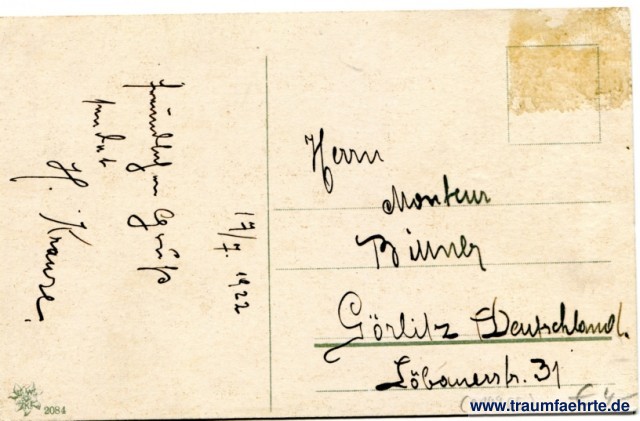 17/7. 1922
Gruß
sendet
H. Krause.
Herrn
Monteur
Görlitz Deutschland.
Löbauerstr. 31
2084
www.traumfaehrte.de